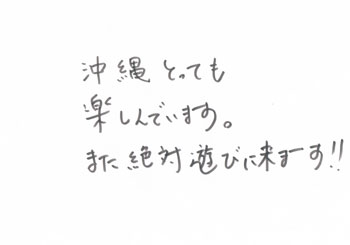 沖縄とっても
楽しんでいます。
また絶対遊びに来まーす!!